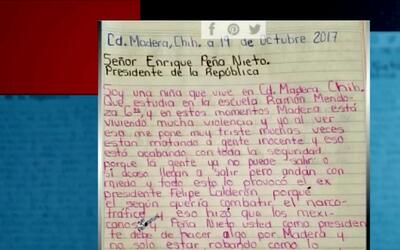 Cd. Madera, Chih. a 19 de octubre 2017
Señor Enrique Peña Nieto.
Presidente de la República
Soy una niña que vive en Cd. Madera, Chih.
Que estudia en la escuela Ramón Mendo-
za 6°, y en estos momentos Madera está
viviendo mucha violencia y yo al ver
eso me pone muy triste muchas veces
estan matando a gente inocente y eso
está acabando con toda la seguridad,
porque la gente ya no puede salir o
si acaso llegan a salir pero andan con
miedo y todo esto lo provocó el ex
presidente Felipe Calderón porque
el según quería combatir el narco-
trafico y eso hizo que los mexi-
canos Peña Nieto usted como presiden-
te debe de hacer algo por Madera y
no solo estar robando como lo